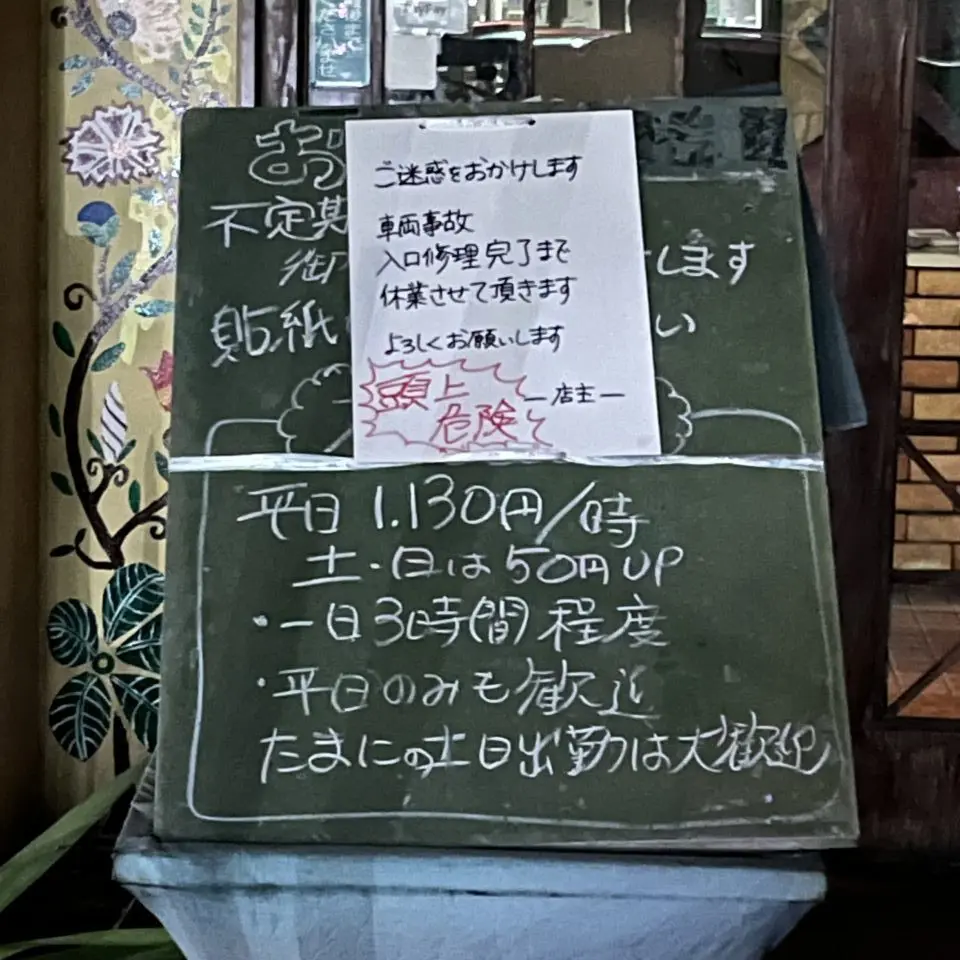 ご迷惑をおかけします
車両事故
入口修理完了まで
休業させて頂きます
よろしくお願いします
頭上
危険
ー店主ー
お
不定期
御 します
貼紙 い
平日 1.130円/時
土・日は50円UP
・一日3時(間)程度
・平日のみも歓迎
たまにの土日出勤は大歓迎